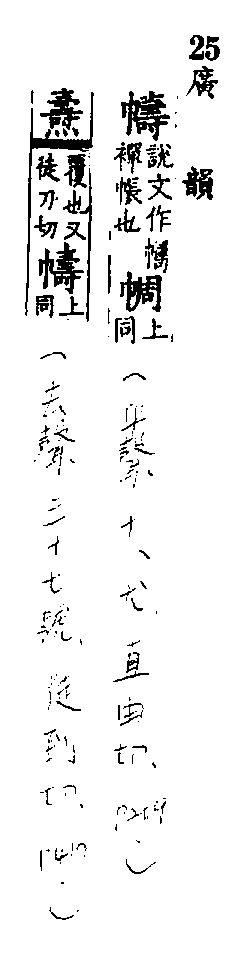 25 廣韻
幬 說文作㡡襌帳也 上同 (平聲 十八尤、直由切、
燾 覆也又徒刀切 幬 上同 (去聲 三十七號、徒到切、